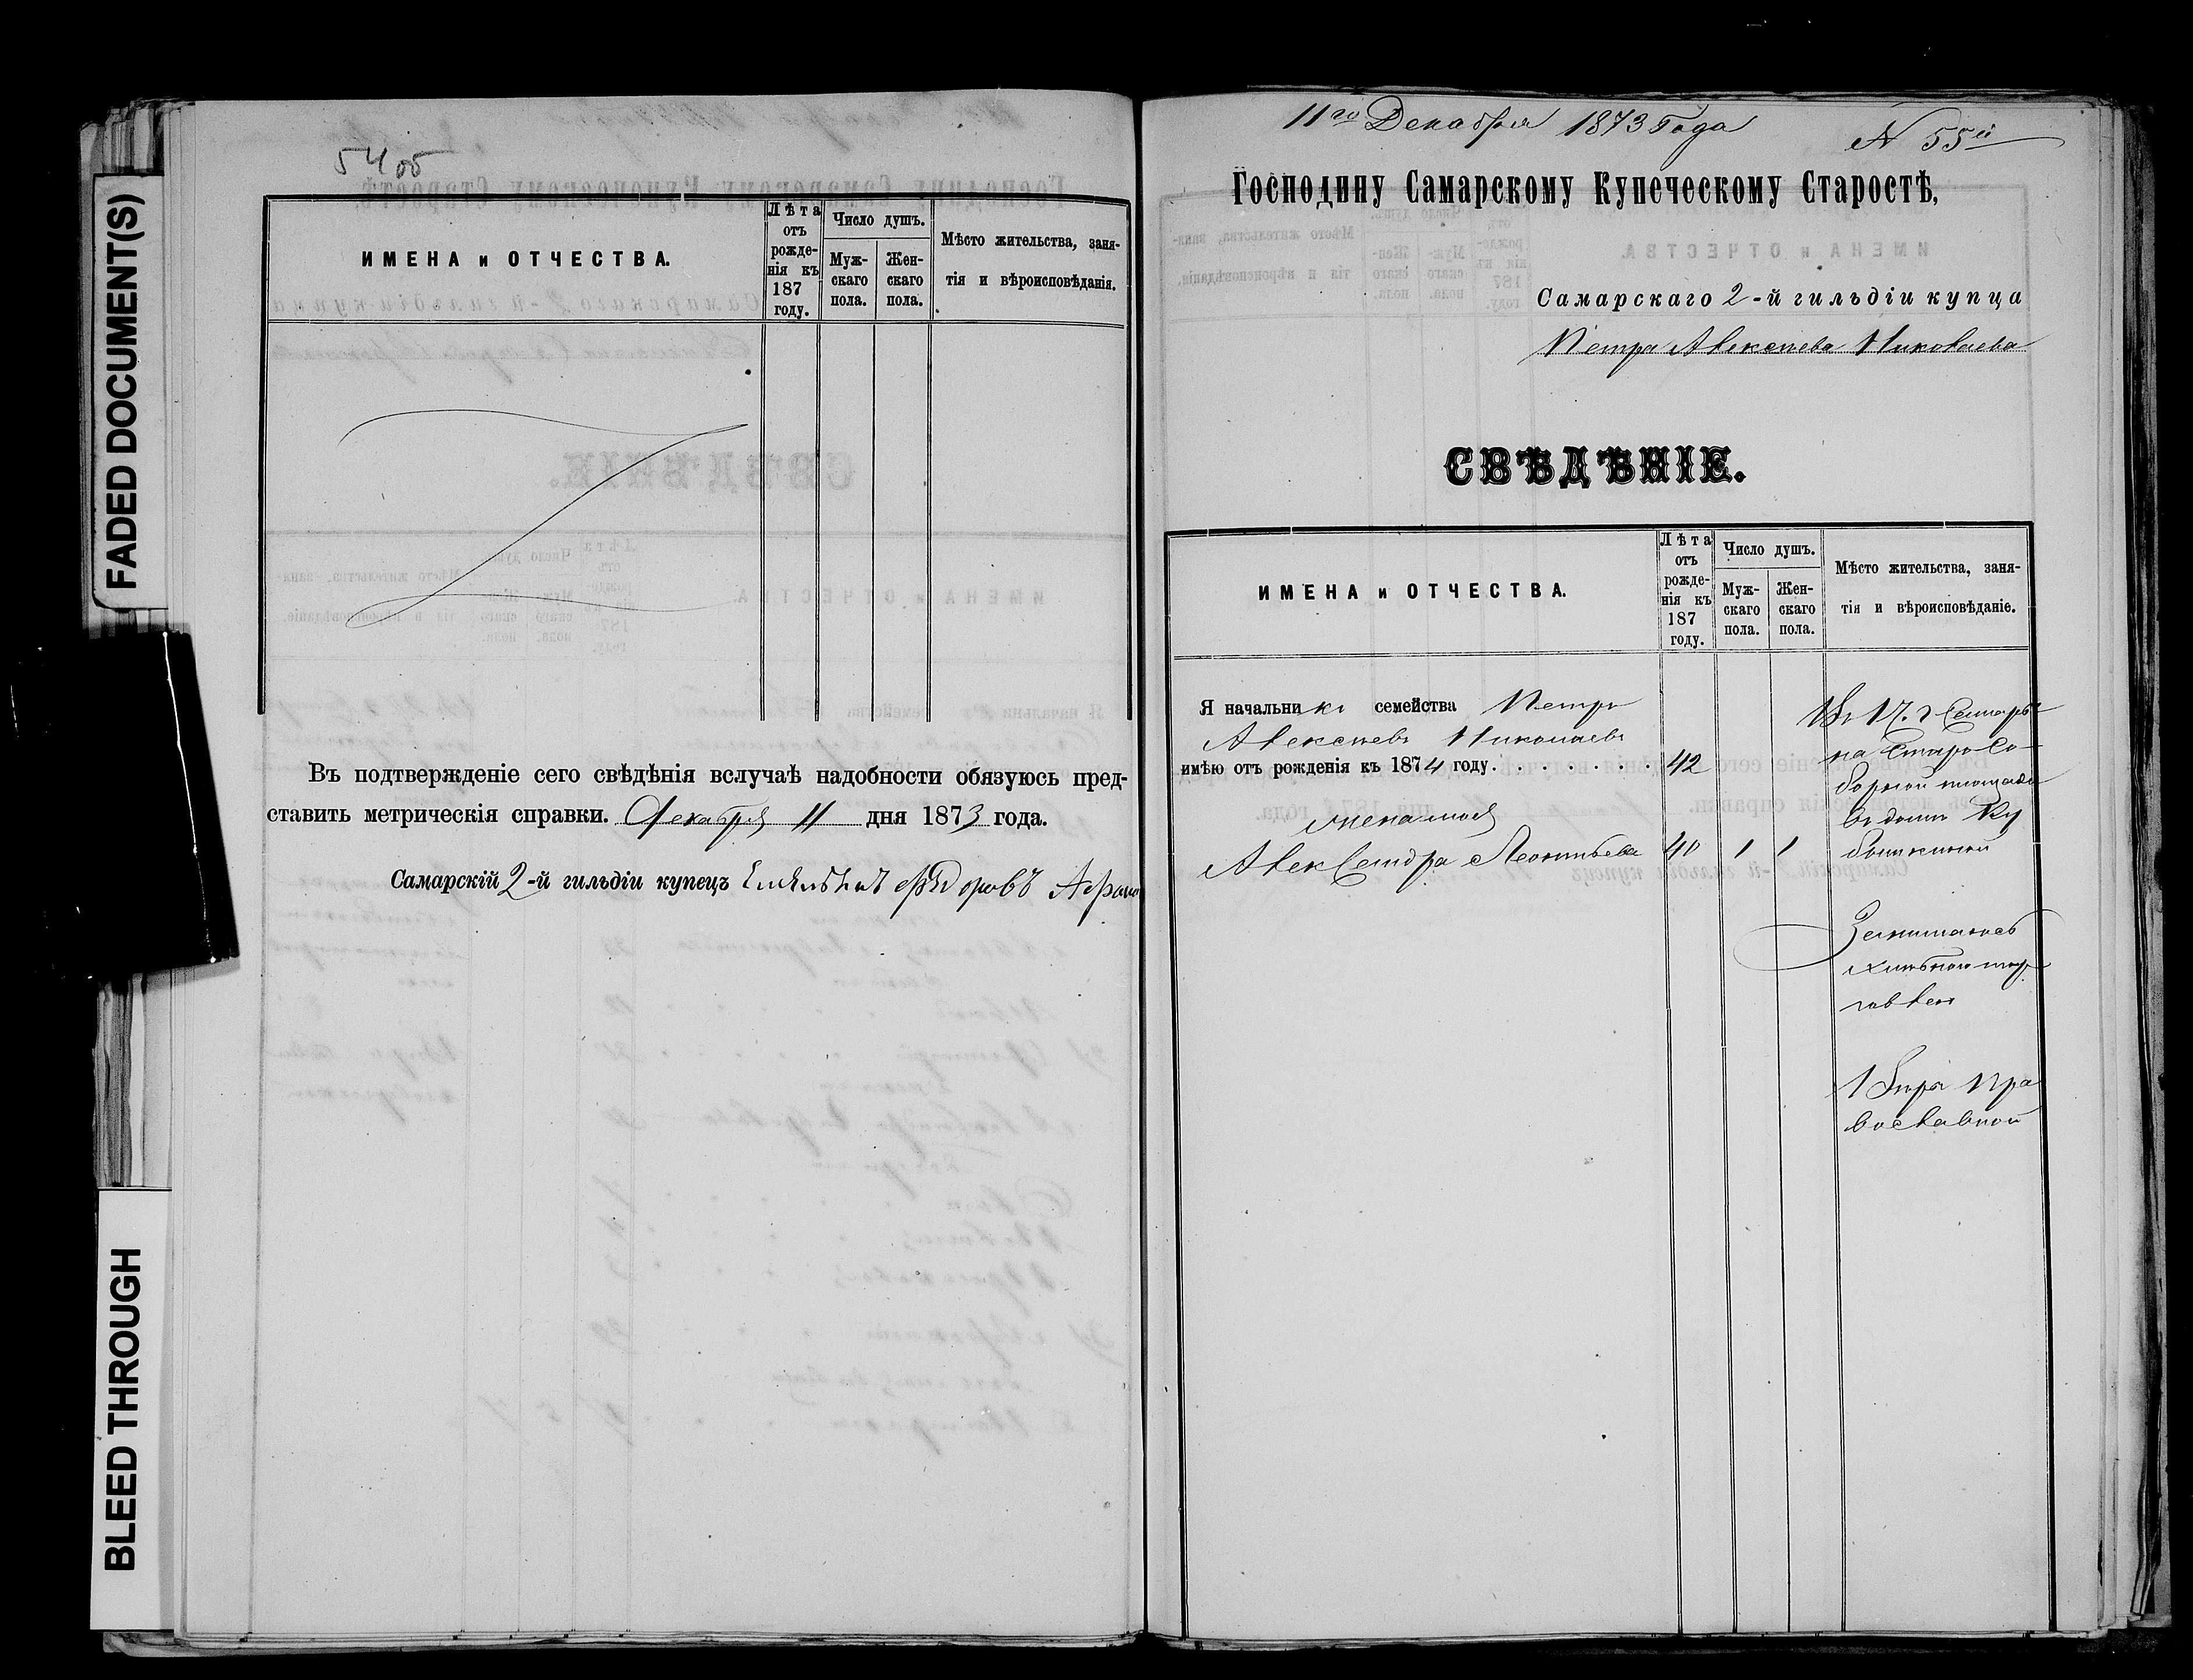 FADED DOCUMENT(S)
BLEED THROUGH
54об
ИМЕНА и ОТЧЕСТВА.
Лѣта отъ рожденія къ 187 году.
Число душъ.
Мужскаго пола.
Женскаго пола.
Мѣсто жительства, занятія и вѣроисповѣданія.
Въ подтвержденіе сего свѣдѣнія вслучаѣ надобности обязуюсь пред-
ставить метрическія справки. Декабря 11 дня 1873 года.
Самарскій 2-й гильдіи купецъ
11го Декабря 1873 Года
N 55й
Господину Самарскому Купеческому Старостѣ,
Самарскаго 2-й гильдіи купца
Петра Алексѣева Николаева
СВѢДѢНІЕ.
ИМЕНА и ОТЧЕСТВА.
Лѣта отъ рожденія къ 187 году.
Число душъ.
Мужскаго пола.
Женскаго пола.
Мѣсто жительства, занятія и вѣроисповѣданіе.
Я начальникъ семейства Петръ
Алексѣевъ Николаевъ
имѣю отъ рожденія къ 1874 году. . . . . . . 42
жена моя
Александра Леонтьева 40 1 1
Въ 1 ч. г Самары
на Старо Со-
борной площади
въ домѣ
Занимаюсь
хлѣбной тор
говлей
Вѣры Пра
вославной